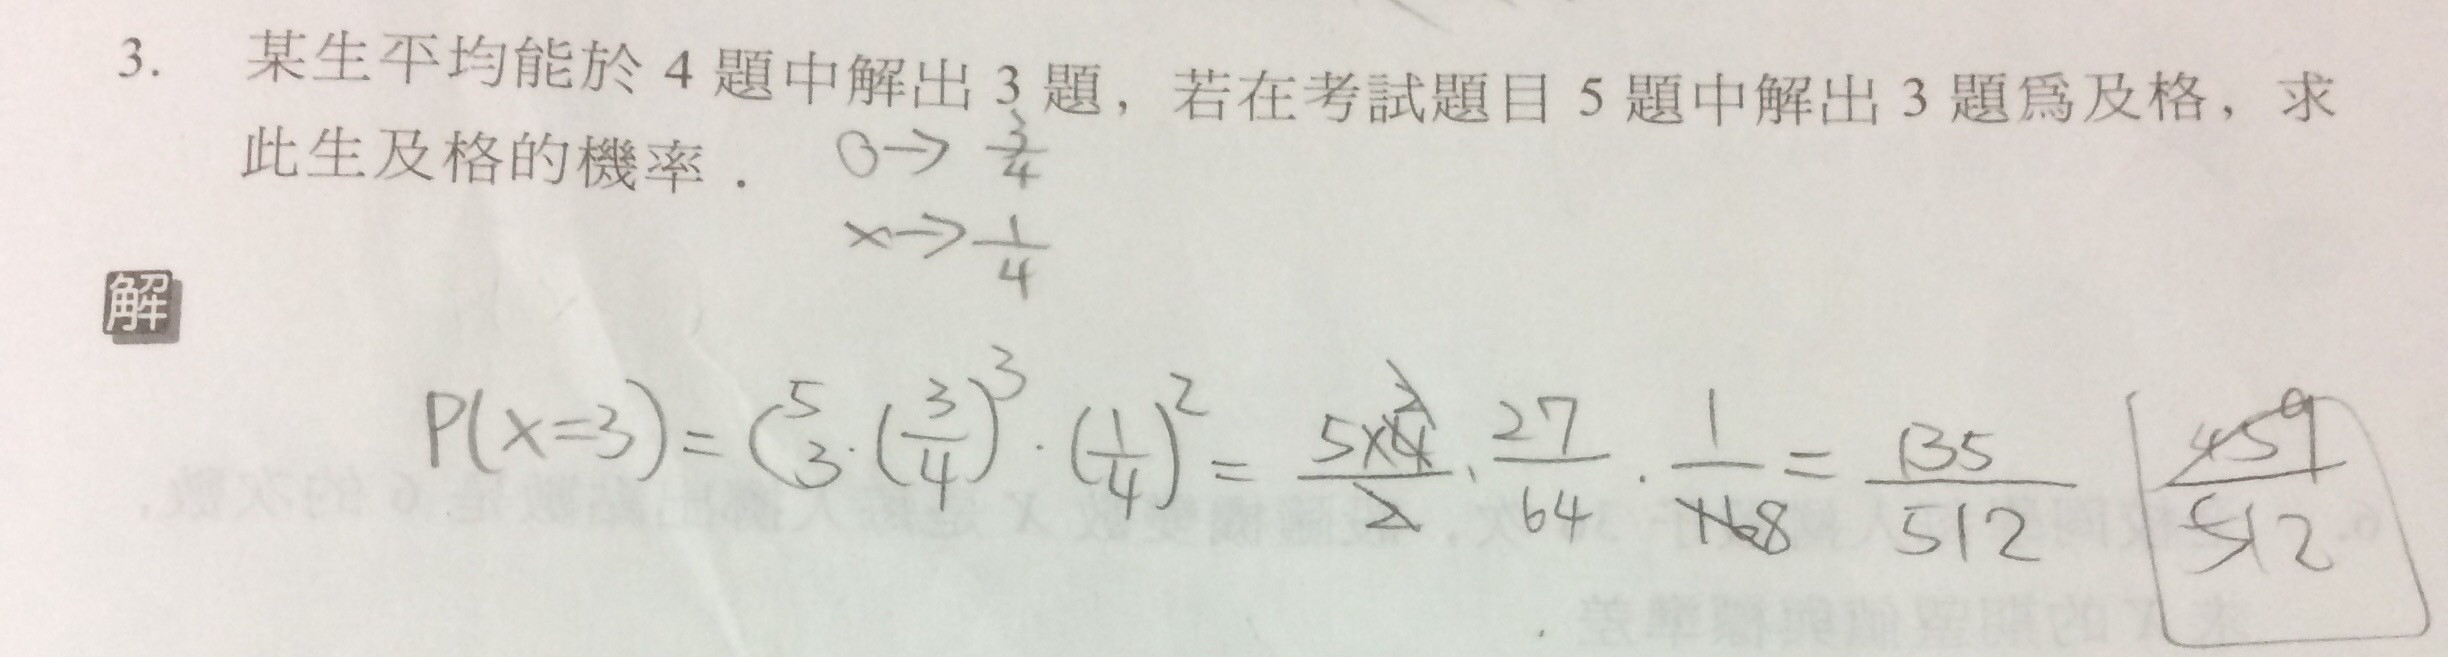 3. 某生平均能於 4 題中解出 3 題，若在考試題目 5 題中解出 3 題為及格，求
此生及格的機率．
O→ 3/4
x→ 1/4
解
P(x=3) = C⁵₃·(3/4)³·(1/4)² = 5×4/2 · 27/64 · 1/16 8 = 135/512 459/512